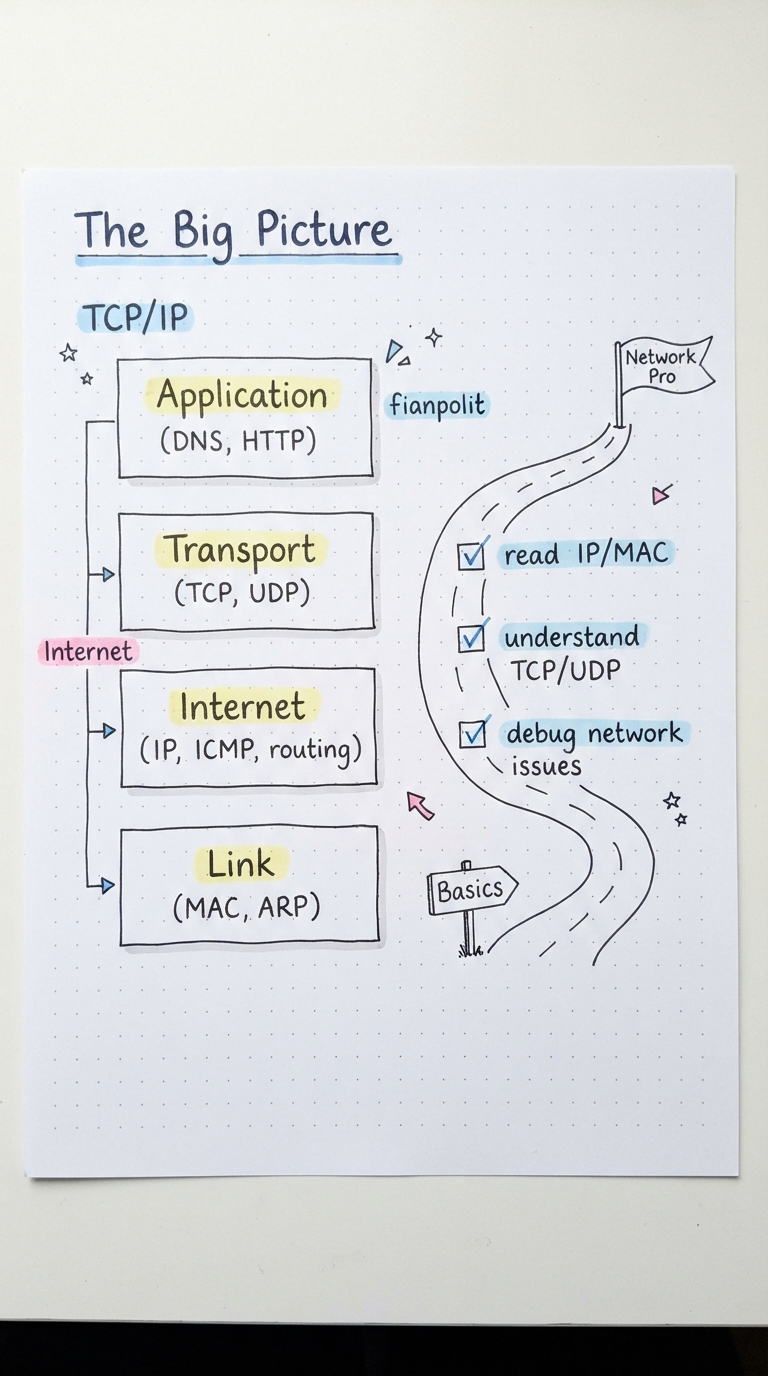 The Big Picture
TCP/IP
Application
(DNS, HTTP)
fianpolit
Transport
(TCP, UDP)
Internet
Internet
(IP, ICMP, routing)
Link
(MAC, ARP)
Network
Pro
read IP/MAC
understand
TCP/UDP
debug network
issues
Basics